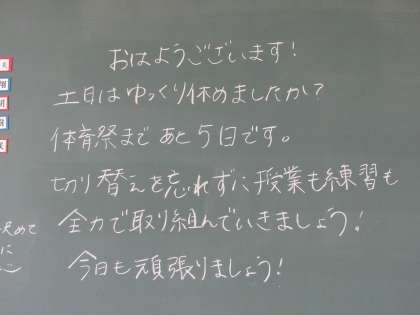 おはようございます!
土日はゆっくり休めましたか?
体育祭まであと5日です。
切り替えを忘れずに授業も練習も
全力で取り組んでいきましょう!
今日も頑張りましょう!